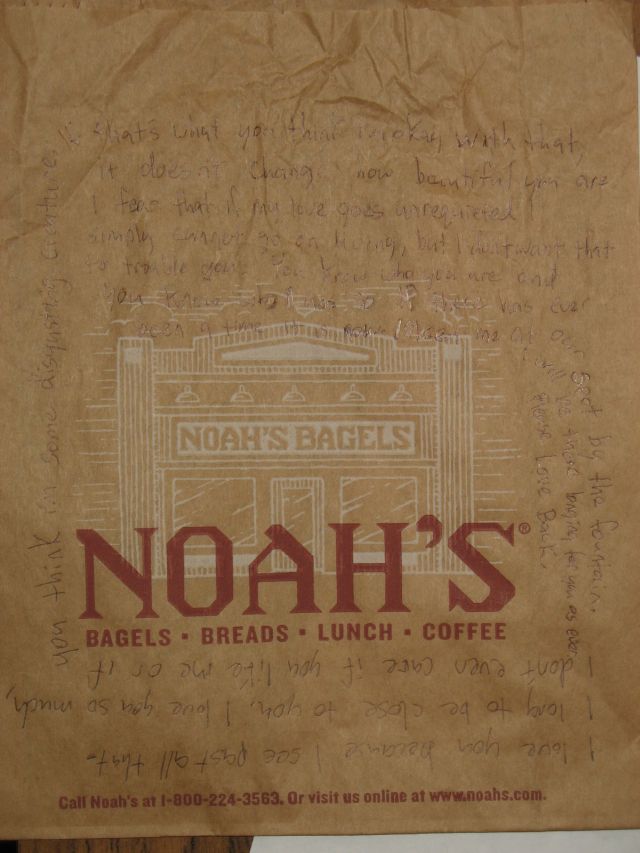 I love you because I see past all that.
I long to be close to you. I love you so much,
I dont even care if you like me or if
you think im some disgusting creature.
if thats what you think im okay with that,
it doesnt change how beautiful you are
I fear that if my love goes unrequieted I
simply cannot go on living, but I dont want that
to trouble you. You know who you are and
you know who I am so if there has ever
been a time it is now. Meet me at our spot by the fountain.
I will be there longing for you as ever
Please Love Back.
NOAH'S BAGELS
NOAH'S®
BAGELS · BREADS · LUNCH · COFFEE
Call Noah's at 1-800-224-3563. Or visit us online at www.noahs.com.